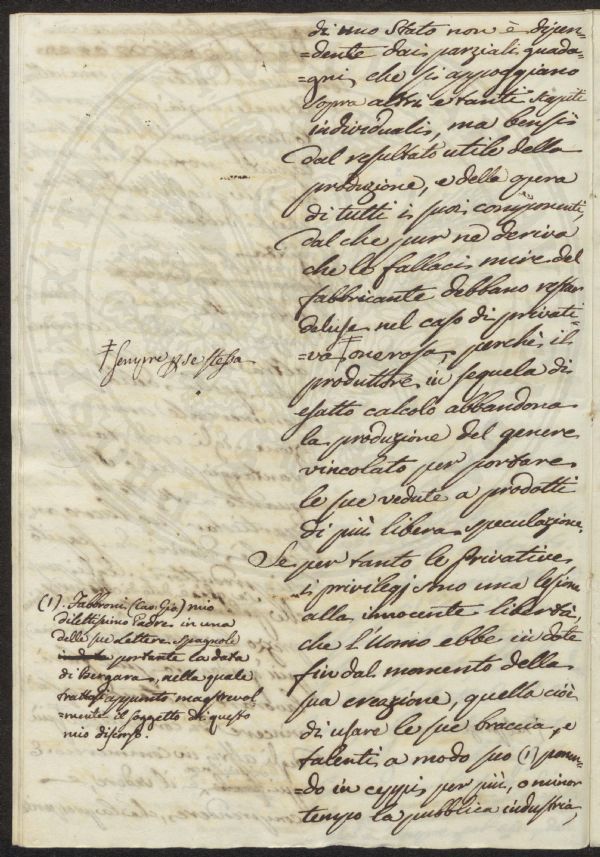 di uno Stato non è dipen-
=dente dai parziali guada-
=gni, che si appoggiano
sopra altri e tanti scapiti
individuali, ma bensì
dal resultato utile della
produzione, e della opera
di tutti i suoi componenti,
dal che pur ne deriva
che le fallaci mire del
fabbricante debbano restar
deluse nel caso di privati-
=va ‡ onerosa, perchè il
produttore in sequela di
esatto calcolo abbandona
la produzione del genere
vincolato per portare
le sue vedute a prodotti
di più libera speculazione.
Se per tanto le privative
i privilegj sono una lesione
alla innocente libertà,
che l'Uomo ebbe in dote
fin dal momento della
sua creazione, quella cioè
di usare le sue braccia, e
talenti a modo suo (1) ponen-
=do in ceppi per più, o minor
tempo la pubblica industria,
‡ sempre per se stessa
(1). Fabbroni (Cav. Gio.) mio
dilettissimo Padre in una
delle sue Lettere spagnole
portante la data
di Bergara, nella quale
trattasi appunto magistrevol-
=mente il soggetto di questo
mio discorso.